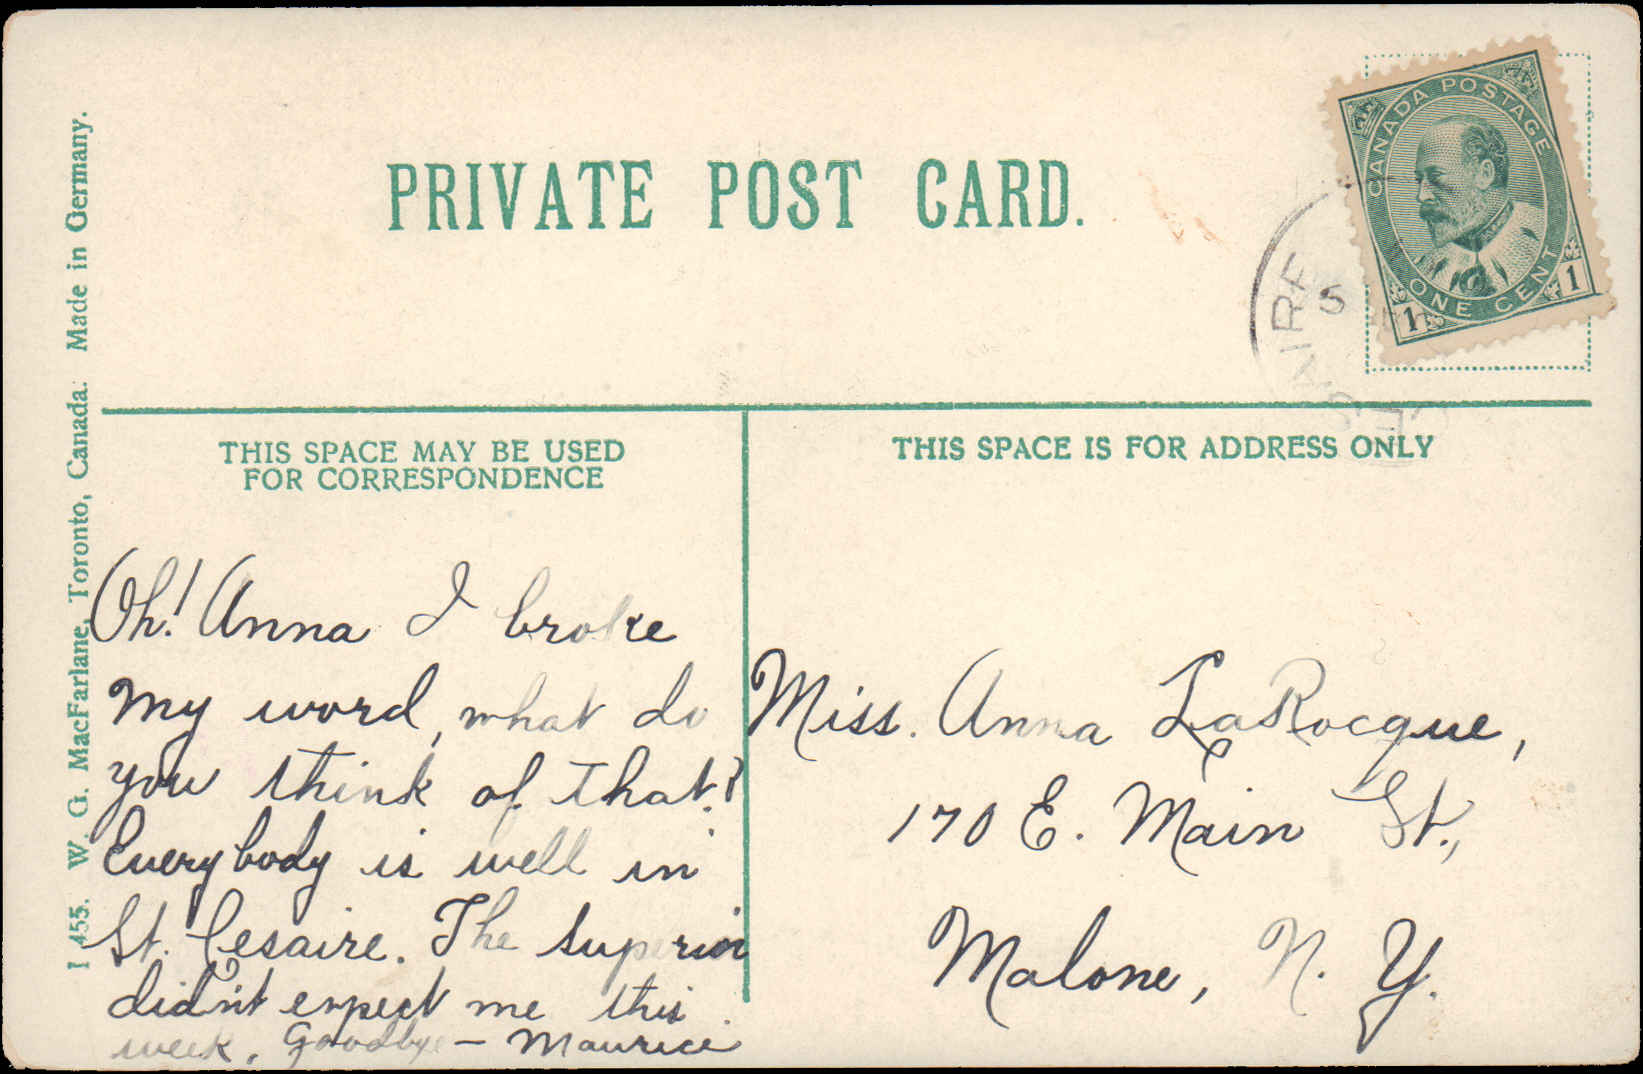 PRIVATE POST CARD.
CANADA POSTAGE
ONE CENT
1 1
5
CESAIRE
I 455. W. G. MacFarlane, Toronto, Canada. Made in Germany.
THIS SPACE MAY BE USED
FOR CORRESPONDENCE
Oh! Anna I broke
my word, what do
you think of that?
Everybody is well in
St. Cesaire. The superior
didn't expect me this
week. Goodbye – Maurice
THIS SPACE IS FOR ADDRESS ONLY
Miss. Anna LaRocque,
170 E. Main St.,
Malone, N. Y.